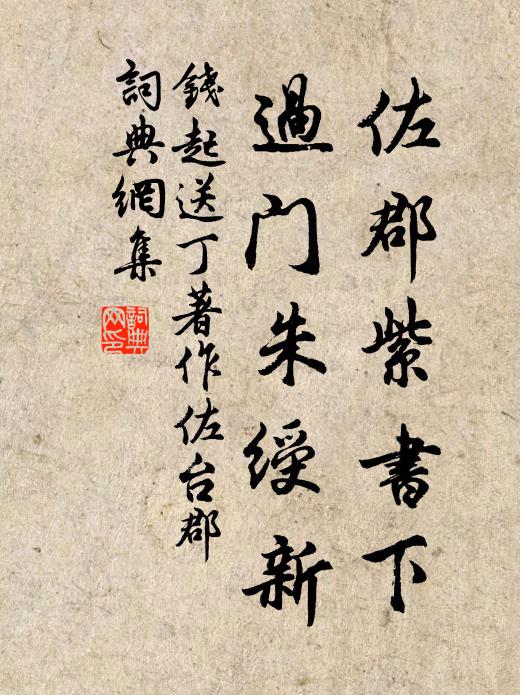 佐郡紫書下
過門朱綬新
錢起送丁著作佐台郡
詞典網集
詞典
网印